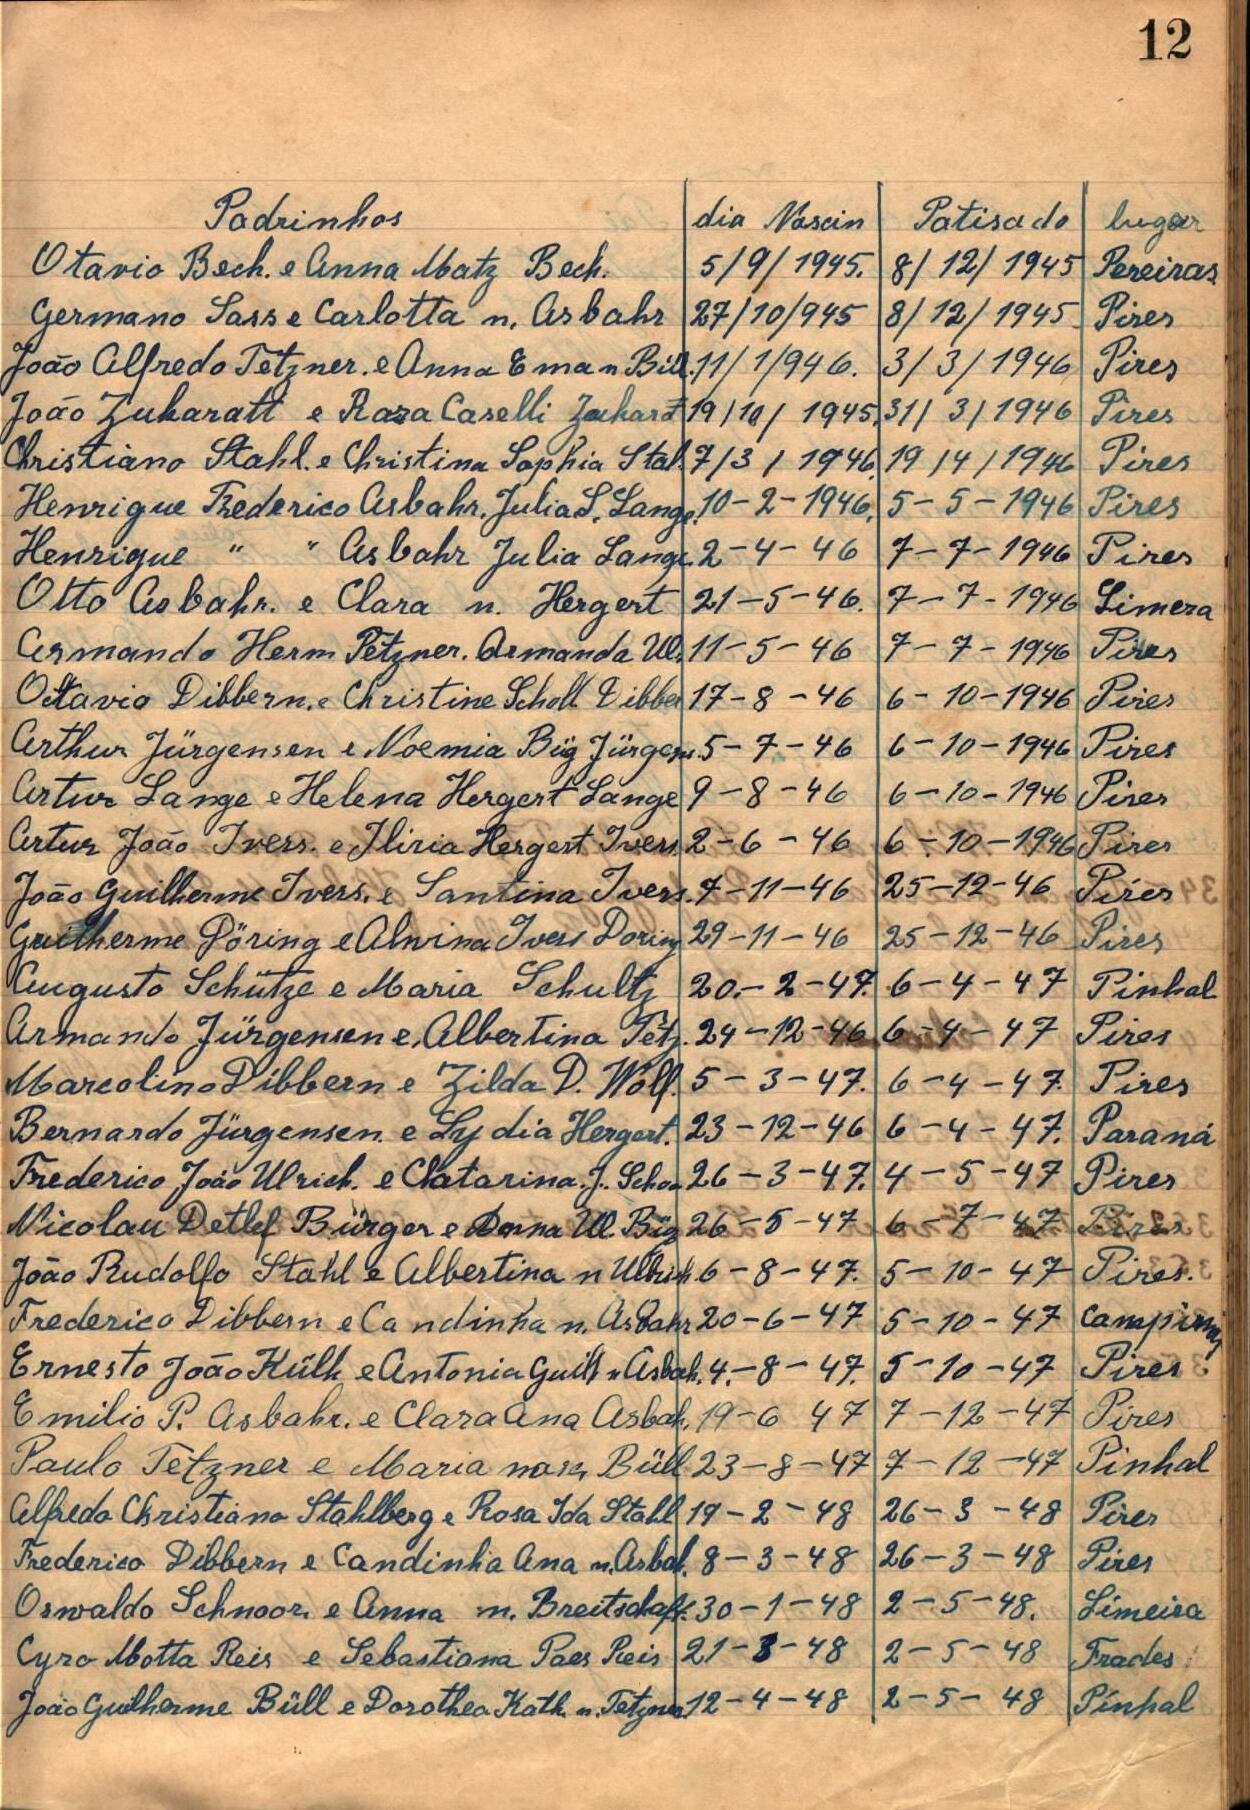 12
Padrinhos dia Nascin Patisado lugar
Otavio Bech. e Anna Matz Bech. 5/9/1945. 8/12/1945 Pereiras
Germano Sass e Carlotta n. Asbahr 27/10/945 8/12/1945 Pires
João Alfredo Tetzner. e Anna Ema n Büll. 11/1/946. 3/3/1946 Pires
João Zukaratt e Raza Caselli Zukarat 19/10/1945. 31/3/1946 Pires
Christiano Stahl. e Christina Sophia Stal. 7/3/1946. 19/4/1946 Pires
Henrique Frederico Asbahr. Julia S. Lange. 10-2-1946. 5-5-1946 Pires
Henrique " " Asbahr Julia Lange 2-4-46 7-7-1946 Pires
Otto Asbahr. e Clara n. Hergert 21-5-46. 7-7-1946 Limera
Armando Herm Petzner. Armanda Ul. 11-5-46 7-7-1946 Pires
Octavio Dibbern. e Christine Scholl Dibber 17-8-46 6-10-1946 Pires
Arthur Jürgensen e Noemia Büg Jürgens. 5-7-46 6-10-1946 Pires
Artur Lange e Helena Hergert Lange 9-8-46 6-10-1946 Pires
Artur João Ivers. e Iliria Hergert Ivers. 2-6-46 6-10-1946 Pires
João Guilherme Ivers. e Santina Ivers. 7-11-46 25-12-46 Pires
Guilherme Döring e Alwina Ivers Doring 29-11-46 25-12-46 Pires
Augusto Schütze e Maria Schultz 20.-2-47. 6-4-47 Pinhal
Armando Jürgensen e, Albertina Tetz. 24-12-46 6-4-47 Pires
Marcolino Dibbern e Zilda D. Wolf. 5-3-47. 6-4-47. Pires
Bernardo Jürgensen e Lydia Hergert. 23-12-46 6-4-47. Paraná
Frederico João Ulrich. e Catarina. J. Scho 26-3-47. 4-5-47 Pires
Nicolau Detlef Bürger e Anna Ul. Büg 26-5-47 6-7-47 Pires
João Rudolfo Stahl e Albertina n Ullrich 6-8-47. 5-10-47 Pires.
Frederico Dibbern e Candinha n. Asbahr 20-6-47 5-10-47 Campinas
Ernesto João Kühl e Antonia Guilh n Asbah. 4.-8-47. 5-10-47 Pires.
Emilio P. Asbahr. e Clara Ana Asbah. 19-6 47 7-12-47 Pires
Paulo Tetzner e Maria nasc, Büll 23-8-47 7-12-47 Pinhal
Alfredo Christiano Stahlberg e Rosa Ida Stahl 19-2-48 26-3-48 Pires
Frederico Dibbern e Candinha Ana n. Asbah. 8-3-48 26-3-48 Pires
Oswaldo Schnoor. e Anna n. Breitschaft. 30-1-48 2-5-48. Limeira
Cyro Motta Reis e Sebastiana Paes Reis 21-3-48 2-5-48 Frades
João Guilherme Büll e Dorothea Kath. n. Tetzner. 12-4-48 2-5-48 Pinhal